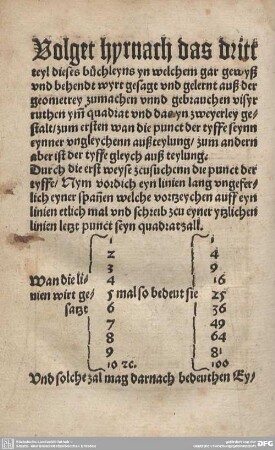 Volget hyrnach das dritt
teyl dieses büchleyns yn welchem gar gewyß
vnd behendt wyrt gesagt vnd gelernt auß der
geometrey zumachen vnnd gebrauchen visyr
ruthen ym̃ quadrat vnd das yn zweyerley ge-
stalt/zum ersten wan die punct der tyffe seynn
eynner vngleychenn außteylung/zum andern
aber ist der tyffe gleych auß teylung.
Durch die erst weyse zcusuchenn die punct der
tyffe/Nym vordich eyn linien lang vngefer-
lich eyner spañen welche vorzeychen auff eyn
linien etlich mal vnd schreib zcu eyner ytzlichen
linien letzt punct seyn quadratzall.
1 1
2 4
3 9
Wan die li- 4 16
nien wirt ge- 5 mal so bedeut sie 25
satzt 6 36
7 49
8 64
9 81
10 ꝛc. 100
Vnd solche zal mag darnach bedeuthen Ey-